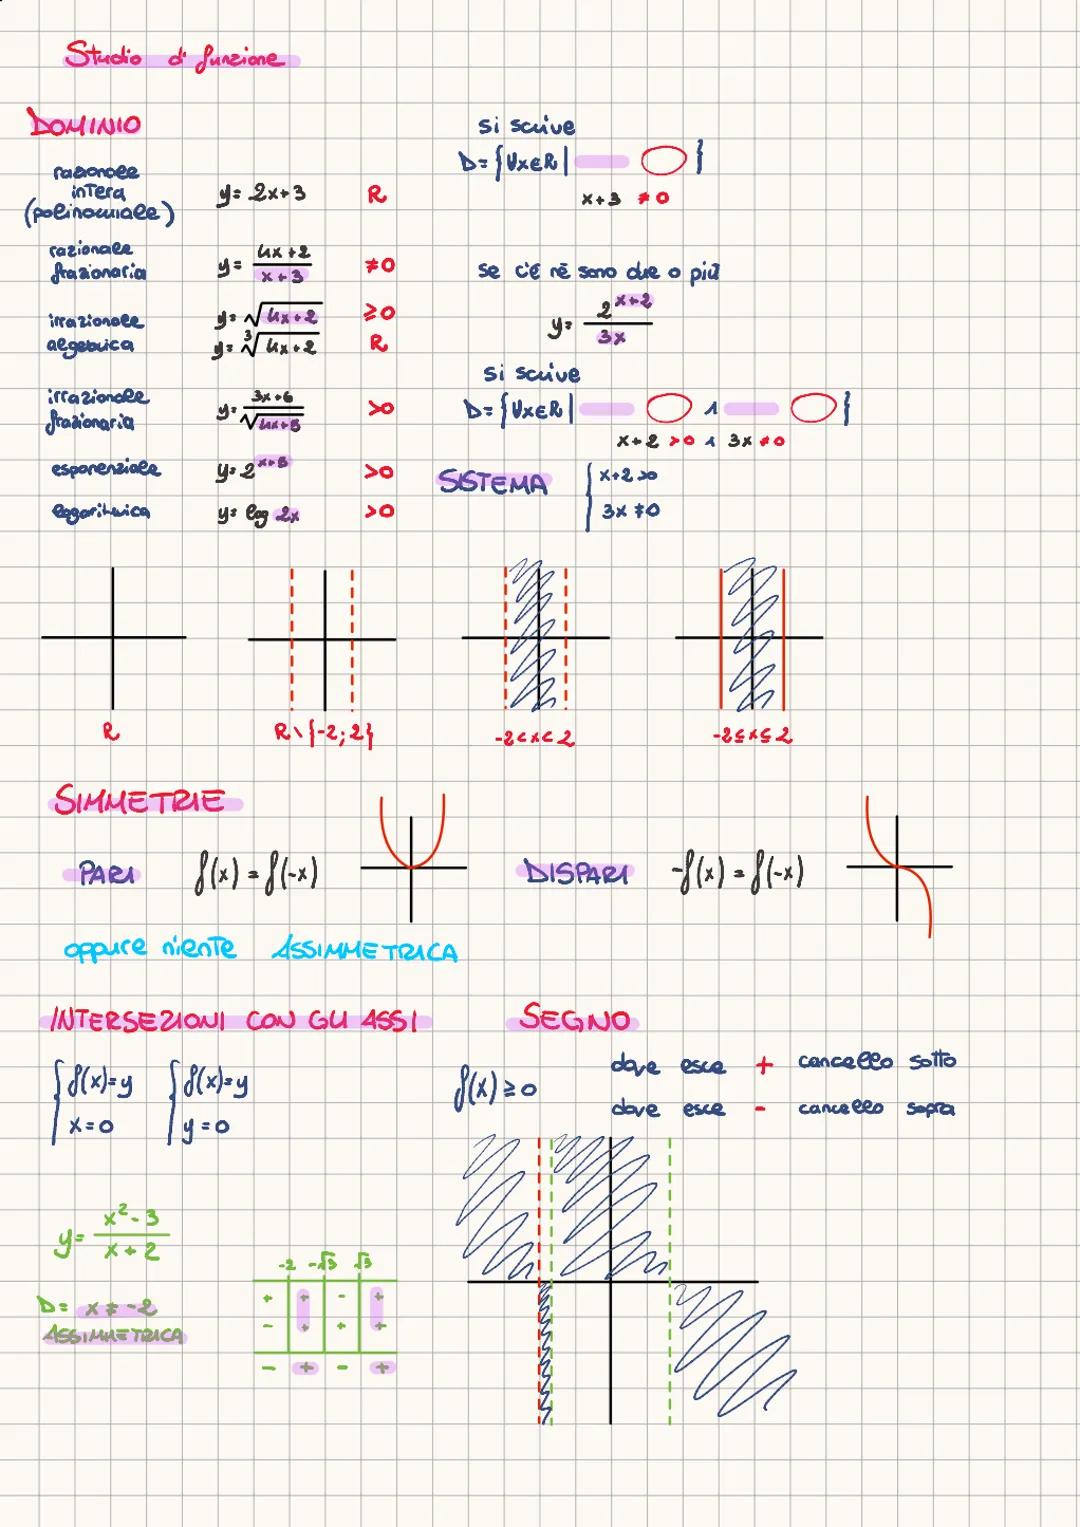 Studio di funzione
DOMINIO
razionale
intera
(polinomiale)
y= 2x+3
R
razionale
frazionaria
y= (4x+2)/(x+3)
≠0
irrazionale
algebrica
y= √(4x+2)
≥0
y= ∛(4x+2)
R
irrazionale
frazionaria
y= (3x+6)/√(4x+5)
>0
esponenziale
y= 2^(x+5)
>0
logaritmica
y= log 2x
>0
si scrive
D= { ∀x∈R | }
x+3 ≠0
se c'é nè sono due o più
y= 2^(x+2)/3x
si scrive
D= { ∀x∈R | ∧ }
x+2 >0 ∧ 3x ≠0
SISTEMA
{ x+2>0
3x ≠0
R
R\{-2;2}
-2<x<2
-2≤x≤2
SIMMETRIE
PARI f(x)=f(-x)
DISPARI -f(x)=f(-x)
oppure niente ASSIMMETRICA
INTERSEZIONI CON GLI ASSI
{ f(x)=y
x=0
{ f(x)=y
y=0
SEGNO
f(x)≥0
dove esce + cancello sotto
dove esce - cancello sopra
y= (x²-3)/(x+2)
D= x≠-2
ASSIMMETRICA
-2 -√3 √3
+ + - +
- + + +
- + - +